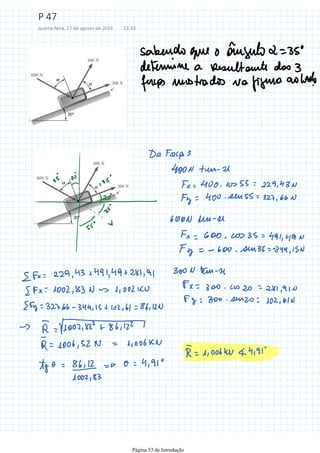 P 47
quarta-feira, 17 de agosto de 2016 13:33
Sabendo que o ângulo α = 35°
determine a resultante dos 3
forças mostradas na figura ao lado
400 N
600 N
α
α
300 N
30°
400 N
600 N
α
α
300 N
30°
Da Força s
400N tem-se
Fx = 400 . cos 55 = 229,43 N
Fy = 400 . sen 55 = 327,66 N
600N tem-se
Fx = 600 . cos 35 = 491,49 N
Fy = - 600 . sen 35 = -344,15N
300 N tem-se
Fx = 300 . cos 20 = 281,91 N
Fy = 300 . sen 20 = 102,61 N
Σ Fx = 229,43 + 491,49 + 281,91
Σ Fx = 1002,83 N -> 1,002 KN
Σ Fy = 327,66 - 344,15 + 102,61 = 86,12N
-> R = √1002,83² + 86,12²
R = 1006,52 N = 1,006 KN
tg θ = 86,12 / 1002,83 => θ = 4,91°
R = 1,006 KN ∡ 4,91°
Página 53 de Introdução